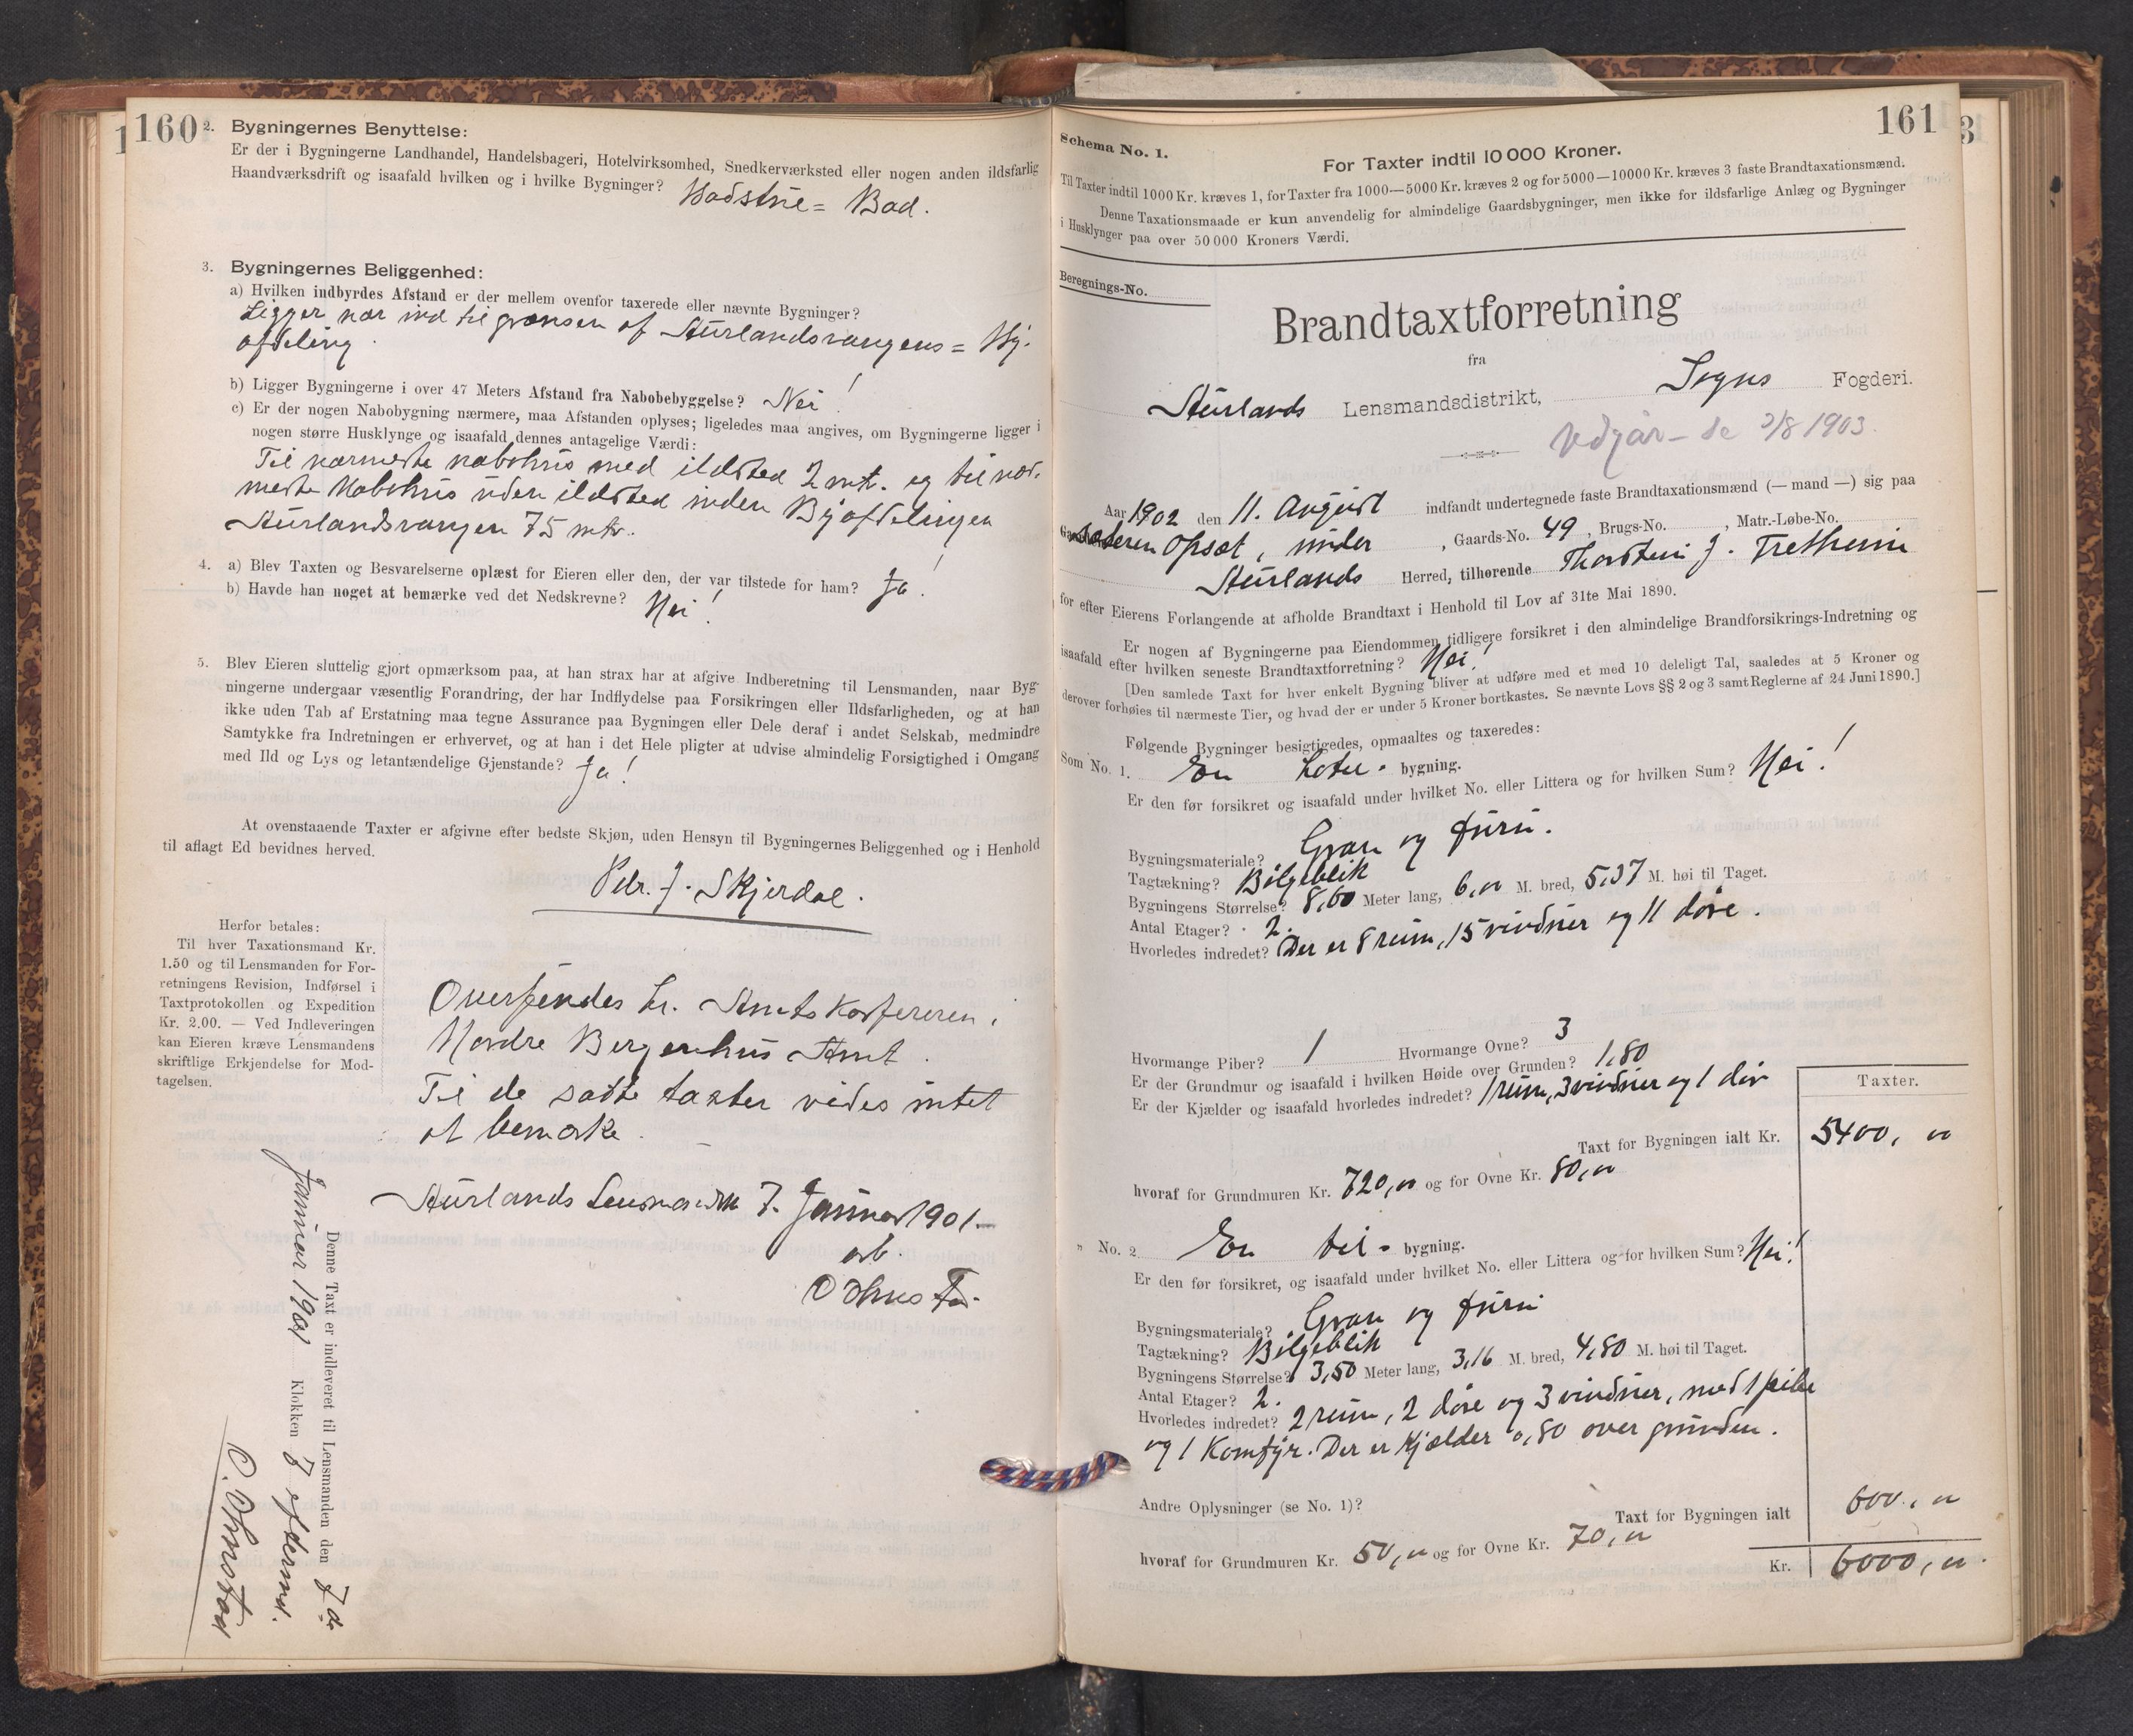 160
2. Bygningernes Benyttelse:
Er der i Bygningerne Landhandel, Handelsbageri, Hotelvirksomhed, Snedkerværksted eller nogen anden ildsfarlig
Haandværksdrift og isaafald hvilken og i hvilke Bygninger? Badstue = Bad.
3. Bygningernes Beliggenhed:
a) Hvilken indbyrdes Afstand er der mellem ovenfor taxerede eller nævnte Bygninger?
Ligger nær ind til grænsen af Aurlandsvangens = By-
afdeling.
b) Ligger Bygningerne i over 47 Meters Afstand fra Nabobebyggelse? Nei!
c) Er der nogen Nabobygning nærmere, maa Afstanden oplyses; ligeledes maa angives, om Bygningerne ligger i
nogen større Husklynge og isaafald dennes antagelige Værdi:
Til nærmeste nabohus med ildsted 2 mt. og til nær-
meste Nabohus uden ildsted inden Byafdelingen
Aurlandsvangen 75 mtr.
4. a) Blev Taxten og Besvarelserne oplæst for Eieren eller den, der var tilstede for ham? Ja!
b) Havde han noget at bemærke ved det Nedskrevne? Nei!
5. Blev Eieren sluttelig gjort opmærksom paa, at han strax har at afgive Indberetning til Lensmanden, naar Byg-
ningerne undergaar væsentlig Forandring, der har Indflydelse paa Forsikringen eller Ildsfarligheden, og at han
ikke uden Tab af Erstatning maa tegne Assurance paa Bygningen eller Dele deraf i andet Selskab, medmindre
Samtykke fra Indretningen er erhvervet, og at han i det Hele pligter at udvise almindelig Forsigtighed i Omgang
med Ild og Lys og letantændelige Gjenstande? Ja!
At ovenstaaende Taxter er afgivne efter bedste Skjøn, uden Hensyn til Bygningernes Beliggenhed og i Henhold
til aflagt Ed bevidnes herved.
Pdr. J. Skjerdal.
Herfor betales:
Til hver Taxationsmand Kr.
1.50 og til Lensmanden for For-
retningens Revision, Indførsel i
Taxtprotokollen og Expedition
Kr. 2.00. — Ved Indleveringen
kan Eieren kræve Lensmandens
skriftlige Erkjendelse for Mod-
tagelsen.
Oversendes hr. Amtskassereren i
Nordre Bergenhus Amt.
Til de satte taxter vides intet
at bemærke.
Aurlands Lensmand 7. Januar 1901
Denne Taxt er indleveret til Lensmanden den 7de
Januar 1901 Klokken 7 efterm.
O. Ohnstad
161
Schema No. 1.
For Taxter indtil 10 000 Kroner.
Til Taxter indtil 1000 Kr. kræves 1, for Taxter fra 1000—5000 Kr. kræves 2 og for 5000—10000 Kr. kræves 3 faste Brandtaxationsmænd.
Denne Taxationsmaade er kun anvendelig for almindelige Gaardsbygninger, men ikke for ildsfarlige Anlæg og Bygninger
i Husklynger paa over 50 000 Kroners Værdi.
Beregnings-No.
Brandtaxtforretning
fra
Aurlands Lensmandsdistrikt, Sogns Fogderi.
vedgår - se 3/8 1903.
Aar 1902 den 11. August indfandt undertegnede faste Brandtaxationsmænd (— mand —) sig paa
Opsæt, under, Gaards-No. 49, Brugs-No. , Matr.-Løbe-No.
Aurlands Herred, tilhørende Thorstein J. Fretheim
for efter Eierens Forlangende at afholde Brandtaxt i Henhold til Lov af 31te Mai 1890.
Er nogen af Bygningerne paa Eiendommen tidligere forsikret i den almindelige Brandforsikrings-Indretning og
isaafald efter hvilken seneste Brandtaxtforretning? Nei!
[Den samlede Taxt for hver enkelt Bygning bliver at udføre med et med 10 deleligt Tal, saaledes at 5 Kroner og
derover forhøies til nærmeste Tier, og hvad der er under 5 Kroner bortkastes. Se nævnte Lovs §§ 2 og 3 samt Reglerne af 24 Juni 1890.]
Følgende Bygninger besigtigedes, opmaaltes og taxeredes:
Som No. 1. En hotel- bygning.
Er den før forsikret og isaafald under hvilket No. eller Littera og for hvilken Sum? Nei!
Bygningsmateriale? Gran og furu.
Tagtækning? Bølgeblik
Bygningens Størrelse? 8,60 Meter lang, 6,00 M. bred, 5,37 M. høi til Taget.
Antal Etager? 2.
Hvorledes indredet? Der er 8 rum, 15 vinduer og 11 døre.
Hvormange Piber? 1 Hvormange Ovne? 3
Er der Grundmur og isaafald i hvilken Høide over Grunden? 1,80
Er der Kjælder og isaafald hvorledes indredet? 1 rum, 3 vinduer og 1 dør
Taxter.
Taxt for Bygningen ialt Kr. 5400, 00
hvoraf for Grundmuren Kr. 720,00 og for Ovne Kr. 80,00
" No. 2 En til- bygning.
Er den før forsikret, og isaafald under hvilket No. eller Littera og for hvilken Sum? Nei!
Bygningsmateriale? Gran og furu
Tagtækning? Bølgeblik
Bygningens Størrelse? 3,50 Meter lang, 3,16 M. bred, 4,80 M. høi til Taget.
Antal Etager? 2.
Hvorledes indredet? 2 rum, 2 døre og 3 vinduer, med 1 pibe
og 1 Komfyr. Der er Kjælder 0,80 over grunden.
Andre Oplysninger (se No. 1)?
Taxt for Bygningen ialt 600, 00
hvoraf for Grundmuren Kr. 50,00 og for Ovne Kr. 70,00
Kr. 6000, 00